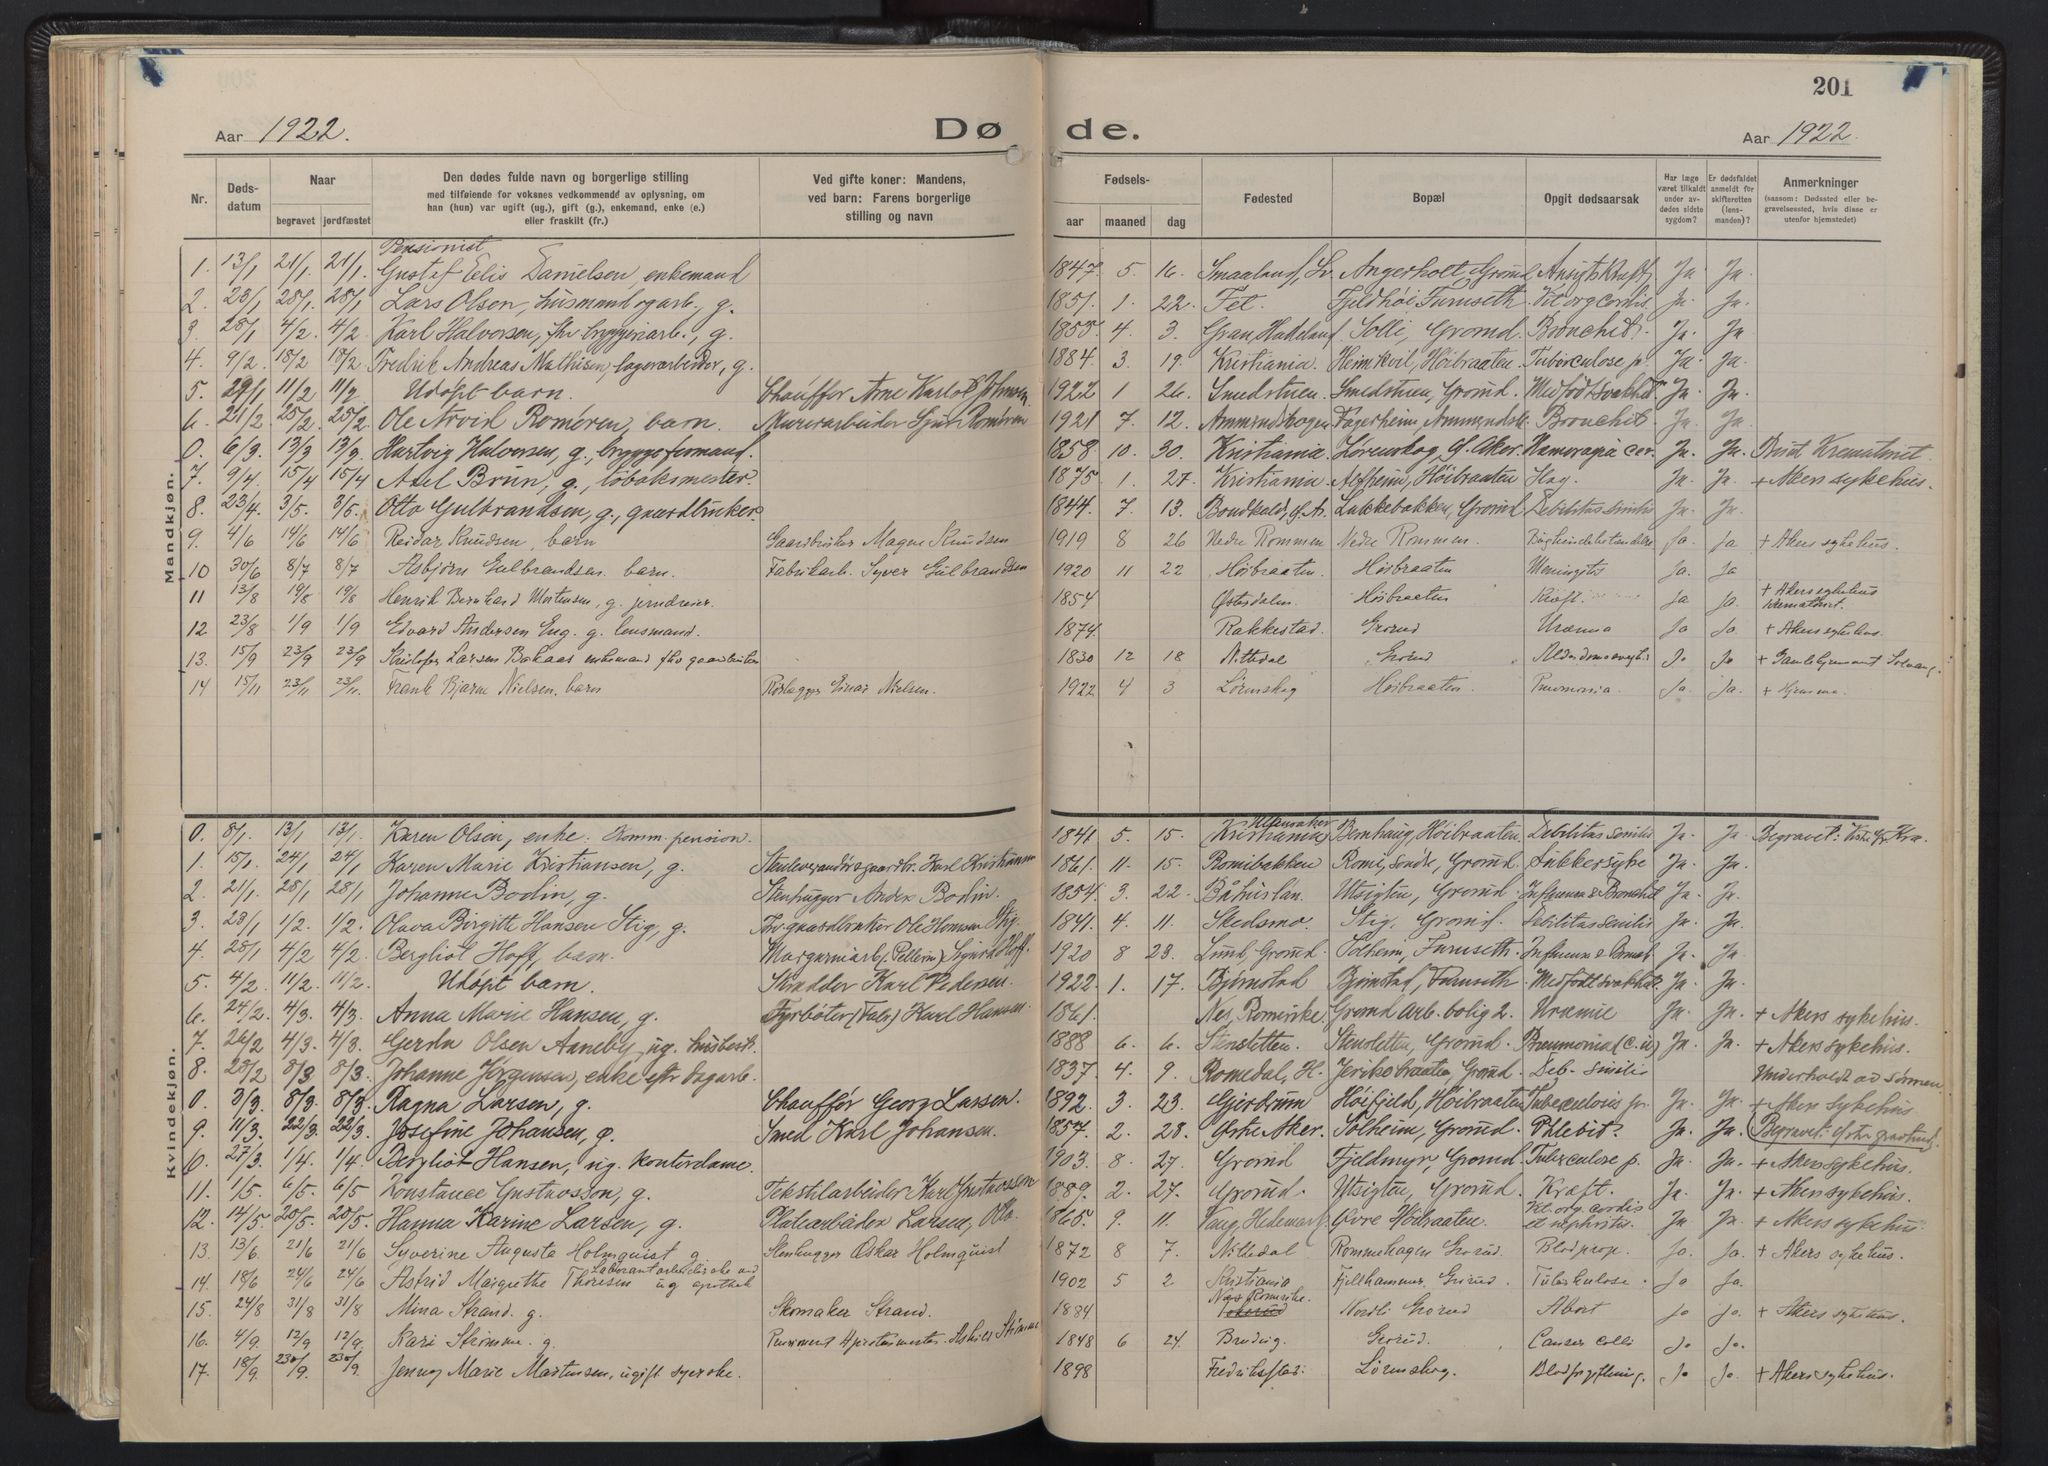 201
Aar 1922. Døde. Aar 1922.
Nr. Døds-datum Naar begravet jordfæstet Den dødes fulde navn og borgerlige stilling Ved gifte koner: Mandens, Fødsels- Fødested Bopæl Opgit dødsaarsak Har læge været tilkaldt under avdødes sidste sygdom? Er dødsfaldet anmeldt for skifteretten (lensmanden)? Anmerkninger
med tilføiende for voksnes vedkommende av oplysning, om ved barn: Farens borgerlige (saasom: Dødssted eller be-
han (hun) var ugift (ug.), gift (g.), enkemand, enke (e.) stilling og navn aar maaned dag gravelsessted, hvis disse er
eller fraskilt (fr.) utenfor hjemstedet)
Mandkjøn.
Pensionist
1. 13/1 21/1. 21/1. Gustaf Danielsen, enkemand 1847. 5. 16. Smaaland, Angerholt, Grorud Ansigtskræft. Ja. Ja.
2. 23/1 28/1 28/1 Lars Olsen, husmand og arb., g. 1851. 1. 22. Fet. Fjeldhøi Furuseth. Vit. org cordis Ja. Ja
3. 28/1 4/2. 4/2. Karl Halvorsen, fhv. bryggeriarb., g. 1855. 4. 3. Gran, Hadeland Solli, Grorud. Bronchit. Ja. Ja
4. 9/2 18/2 18/2 Fredrik Andreas Mathisen, lagerarbeider, g. 1884. 3. 19. Kristiania. Heimkvil, Høibraaten. Tuberculose p. Ja. Ja.
5. 29/1 11/2 11/2 Udøpt barn. Chauffør Arne Karlot Johnsen. 1922 1 26. Smedstuen. Smedstuen, Grorud. Medfødt svakhet Ja. Ja.
6. 21/2. 25/2. 25/2. Ole Arvid Romøren, barn. Murerarbeider Romøren 1921 7. 12. Ammerudskogen Fagerheim, Bronchit. Ja Ja
0. 6/3. 13/3 13/3 Hartvig Halvorsen, g., bryggeformand. 1858. 10. 30. Kristiania. Lørenskog, Ø. Aker. Hæmoragia cer. Ja. Ja. Brændt Krematoriet.
7. 9/4. 15/4 15/4 Axel Brun, g., tobaksmester. 1875. 1. 27. Kristiania. Alfheim, Høibraaten Ja. Ja. + Akers sykehus.
8. 23/4. 3/5. 3/5. Otto Gulbrandsen, g., gaardbruker. 1844. 7. 13. Bakkebakken, Grorud Debilitas senilis Ja. Ja.
9. 4/6 14/6 14/6 Reidar Knudsen, barn Gaardbruker Magne Knudsen 1919 8 26 Nedre Rommen Nedre Rommen. Ja. Ja + Akers sykehus.
10 30/6 8/7 8/7 Asbjørn Gulbrandsen. barn. Fabrikarb. Syver Gulbrandsen 1920 11 22 Høibraaten. Høibraaten Meningitis Ja. Ja
11 13/8 19/8 19/8 Henrik Bernhard Mortensen, g. 1854 Østerdalen. Høibraaten Kræft. Ja Ja. + Akers sykehus krematoriet.
12 23/8 1/9 1/9 Edvard Andersen Eng. g. lensmand. 1874. Rakkestad. Grorud Uræmia Ja Ja. + Akers sykehus.
13. 15/9 23/9 23/9 Kristofer Larsen Bakaas enkemand fhv gaardbruker 1830 12 18 Nittedal Grorud Ja Ja + Solvang.
14 15/11 23/11 23/11. Frank Bjarne Nielsen. barn Rørlægger Einar Nielsen. 1922 4 3 Lørenskog Høibraaten. Pneumonia. Ja. Ja. + Hjemme.
Kvindekjøn.
0. 8/1. 13/1 13/1. Karen Olsen, enke. Komm. pension. 1841. 5. 15. Ullensaker (Kristiania) Bernhaug, Høibraaten. Debilitas senilis Ja. Ja Begravet:
1. 15/1 24/1 24/1 Karen Marie Kristiansen, g. Karl Kristiansen 1861. 11. 15. Romibakken Romi, søndre, Grorud. Sukkersyke Ja. Ja.
2. 21/1 28/1 28/1 Johanne Bodin, g. Stenhugger Anders Bodin. 1854. 3. 22. Båhuslän. Utsigten, Grorud. Influenza & Bronchit Ja. Ja.
3. 23/1 1/2. 1/2. Olava Birgitte Hansen Stig, g. Fhv. gaardbruker Ole Hansen Stig. 1841. 4. 11. Skedsmo. Stig, Grorud. Debilitas senilis Ja. Ja.
4. 28/1 4/2 4/2 Bergliot Hoff, barn. Margarinarb. (Pellerin) Sigurd Hoff. 1920 8 23. Lund, Grorud. Solheim, Furuseth. Ja. Ja.
5. 4/2. 11/2. 11/2. Udøpt barn. Skrædder Karl Pedersen. 1922. 1. 17. Bjørnstad Bjørnstad, Furuseth Medfødt svakhet Ja. Ja.
6. 24/2. 4/3. 4/3. Anna Marie Hansen, g. Fyrbøter (Fabr.) Karl Hansen. 1861. Nes, Romerike. Grorud arb.bolig 2. Uræmie Ja. Ja. + Akers sykehus.
7. 26/2 4/3. 4/3. Gerda Olsen Aaneby, ug. husbest. 1888 6. 6. Stensletten. Stensletten, Grorud. Pneumonia (c. i.) Ja. Ja. + Akers sykehus.
8. 28/2 8/3 8/3. Johanne Jørgensen, enke efter dagarb. 1837. 4. 9. Romedal, H. Jerikobraaten, Grorud. Deb. senilis Underholdt av sønnen
0. 3/3. 8/3. 8/3. Ragna Larsen, g. Chauffør Georg Larsen. 1892. 3. 23. Gjerdrum Høifjeld, Høibraaten Tuberculosis p. Ja. Ja. + Akers sykehus
9. 11/3. 22/3. 22/3. Josefine Johansen, g. Smed Karl Johansen. 1857. 2. 28. Østre Aker. Solheim, Grorud. Phlebit. Ja. Ja. (Begravet: Østre gravlund.
10. 27/3. 1/4. 1/4. Bergliot Hansen, ug. kontordame. 1903. 8. 27. Grorud Fjeldmyr, Grorud. Tuberculose p. Ja. Ja. + Akers sykehus.
11. 1/5. 6/5. 6/5 Konstance Gustavsson, g. Tekstilarbeider Karl Gustavsson 1889. 2. 27. Grorud. Utsigten, Grorud. Kræft. Ja. Ja. + Akers sykehus.
12. 14/5. 20/5. 20/5. Hanna Karine Larsen, g. Platearbeider Larsen, Otto. 1865. 9. 11. Vang, Hedemark Øvre Høibraaten. Vit. org. cordis et nephritis. Ja. Ja. + Akers sykehus.
13. 13/6. 21/6 21/6 Syverine Augusta Holmquist g. Stenhugger Oskar Holmquist 1872 8 7. Nittedal Rommehagen Grorud. Blodprop. Ja. Ja. + Akers sykehus.
14. 18/6 24/6 24/6 Astrid Margrethe Thoresen ug apothek 1902 5 2 Kristiania Fjellhammer, Grorud. Tuberkulose. Ja Ja.
15. 24/8 31/8 31/8 Mina Strand. g. Skomaker Strand. 1884 Nes Romerike. Nordli Grorud Abort Ja Ja. + Akers sykehus.
16. 4/9. 12/9 12/9. Kari Strømme. g. Strømme 1848 6 24. Grorud. Cancer colli Ja Ja.
17. 18/9. 23/9. 23/9. Jenny Marie Martensen, ugift syerske. 1898 Fredrikstad. Lørenskog. Blodforgiftning. Ja Ja. + Akers sykehus.